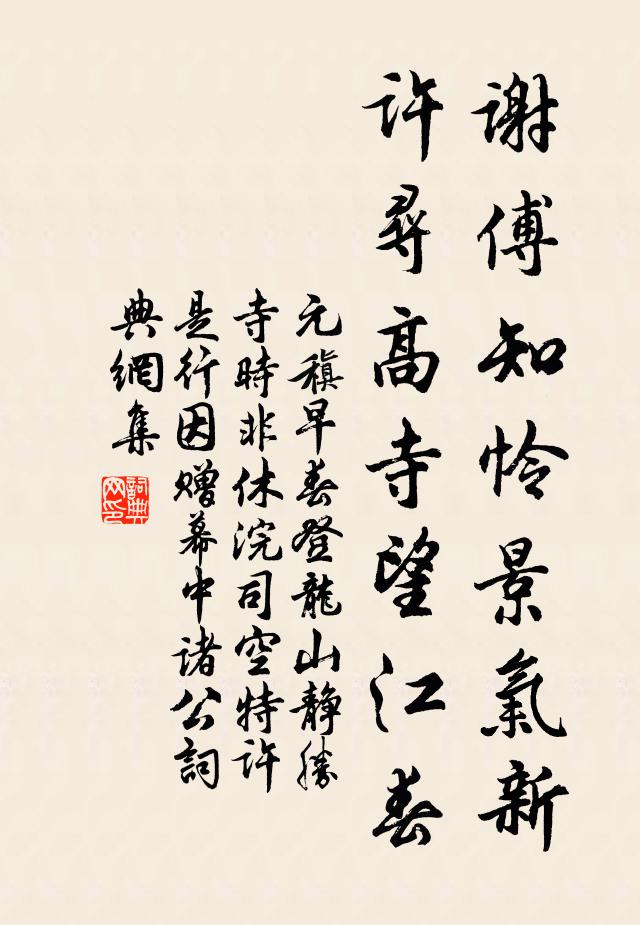 謝傅知怜景氣新
許尋高寺望江春
元稹早春登龍山静勝
寺時非休浣司空特許
是行因赠幕中諸公詞
典網集
詞典
网印